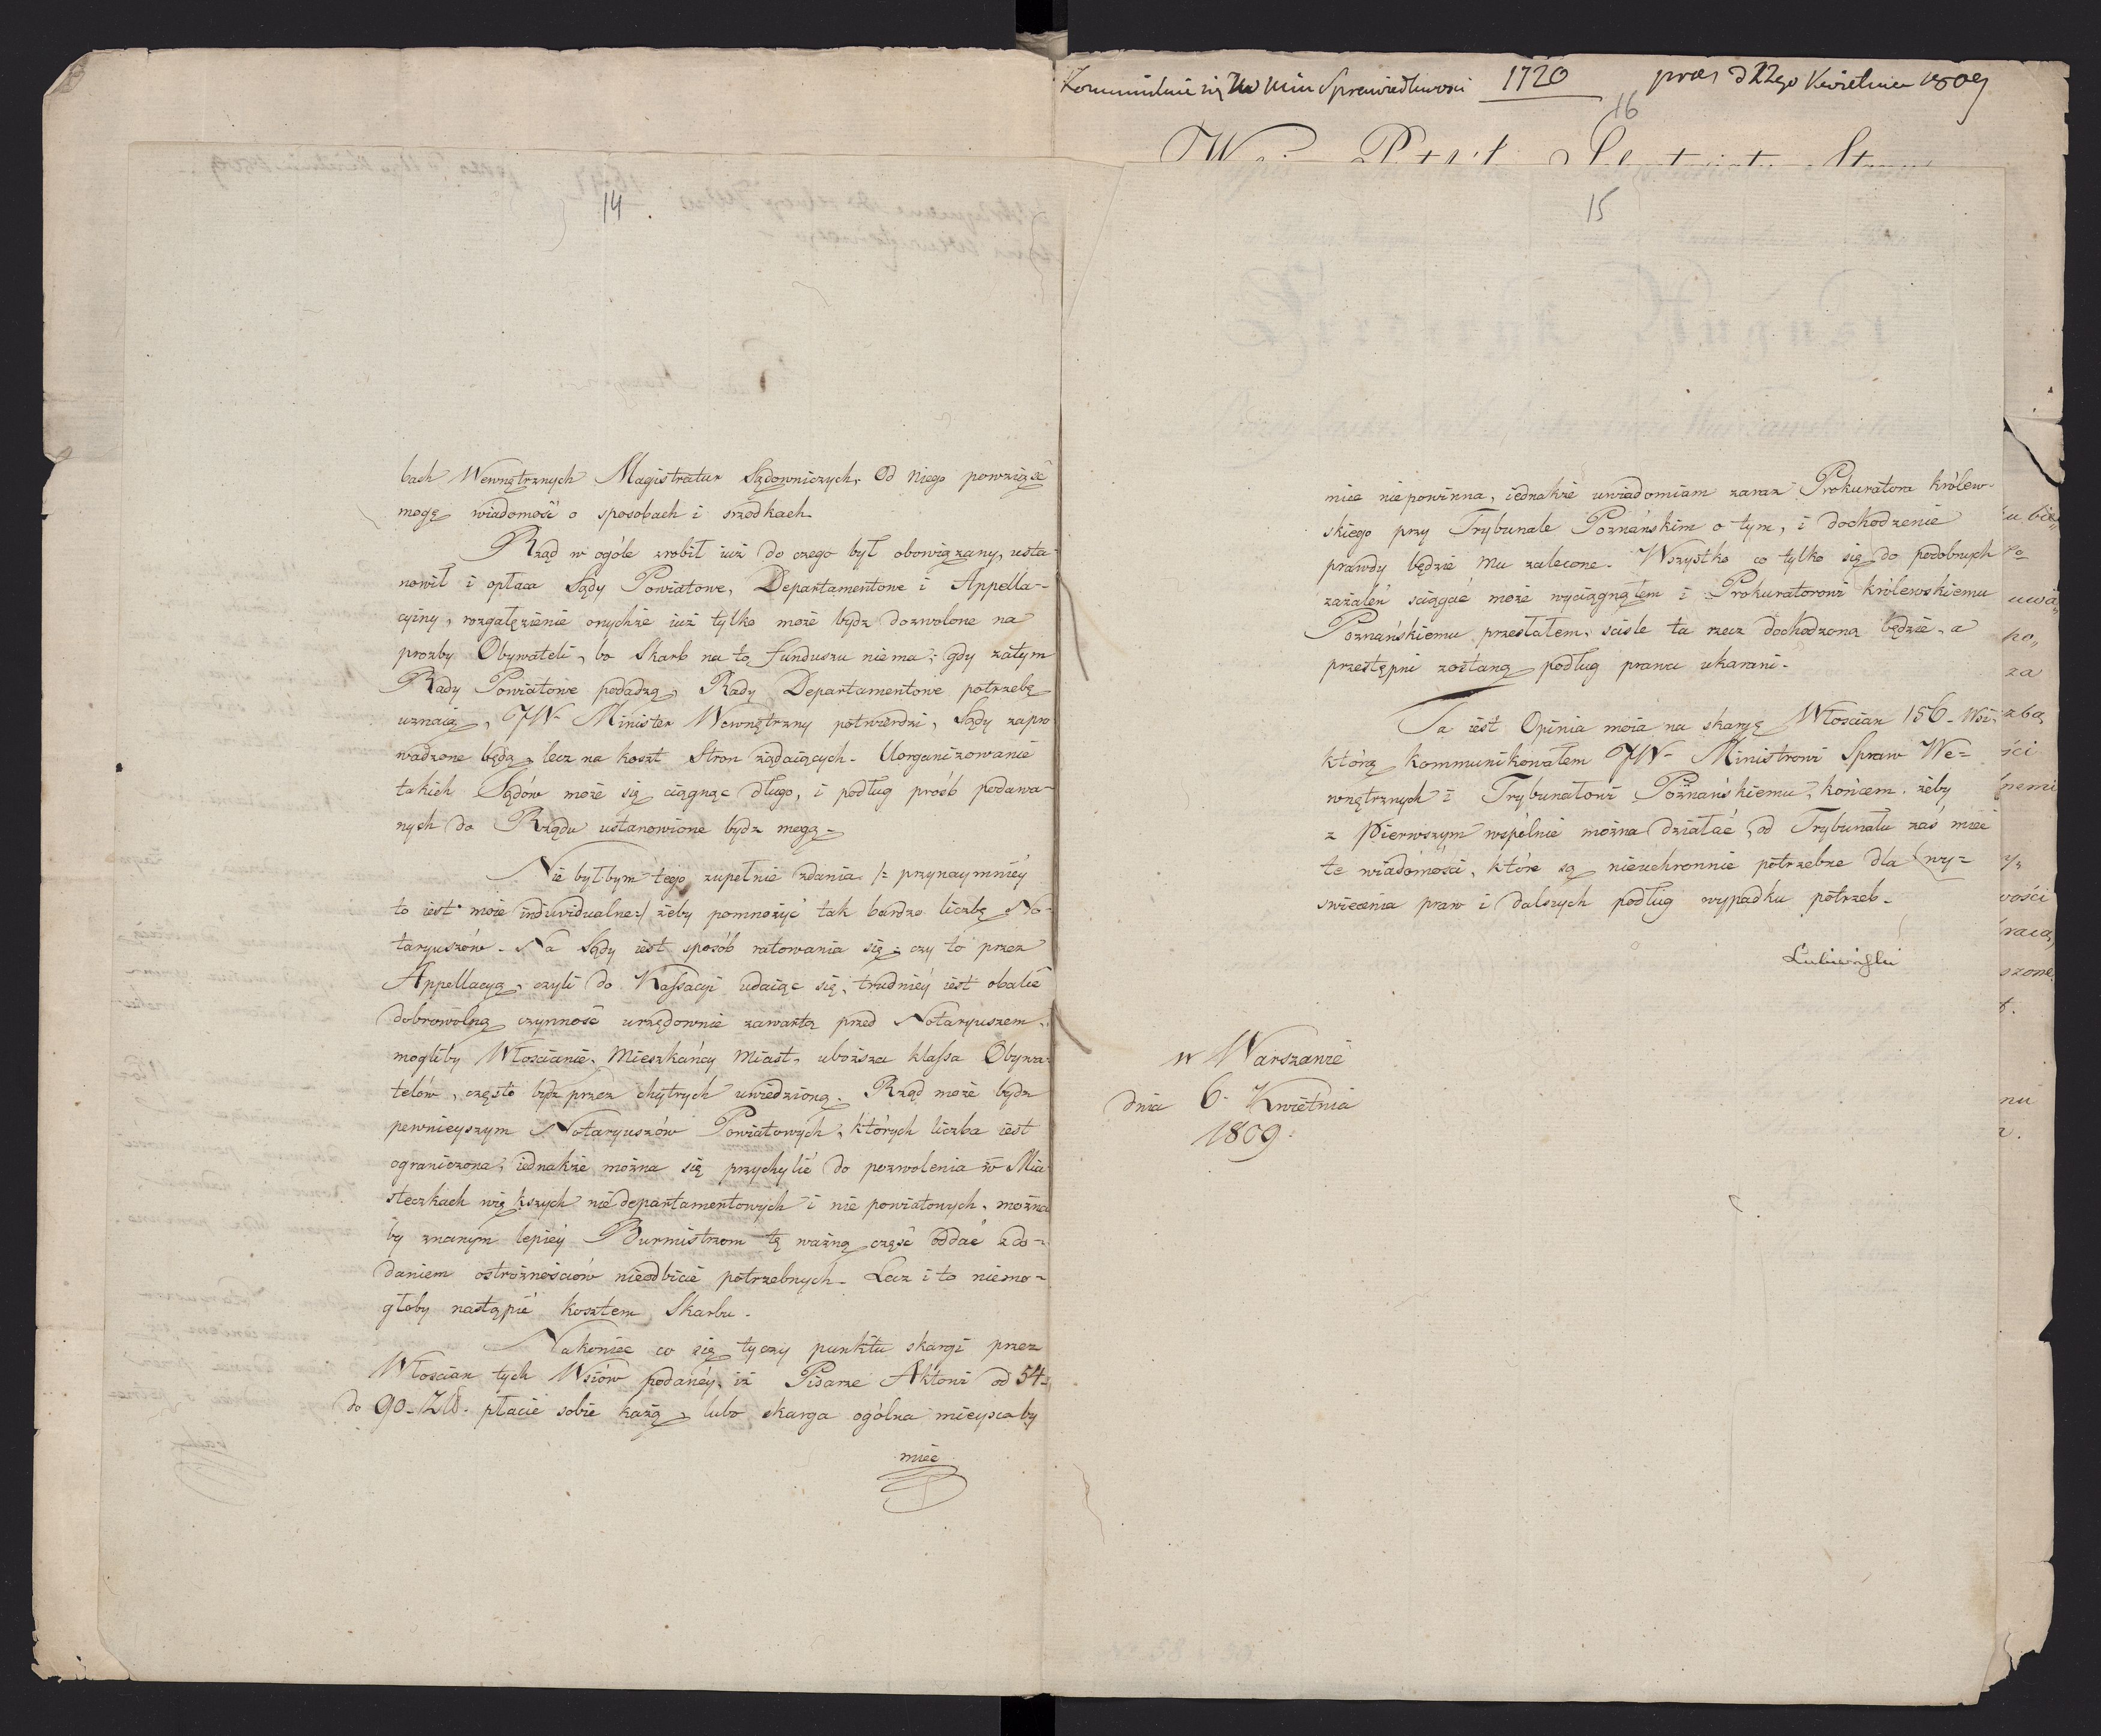 14.
bach Wewnętrznych Magistratur Sądowniczych. Od niego powziąść
mogę wiadomość o sposobach i srzodkach.
Rząd w ogóle zrobił iuż do czego był obowiązany, usta-
nowił i opłaca Sądy Powiatowe, Departamentowe i Appella-
cyiny, rozgałęzienie onychże iuż tylko może bydz dozwolone na
prozby Obywateli, bo Skarb na to funduszu niema; gdy zatym
Rady Powiatowe podadzą, Rady Departamentowe potrzebę
uznaią, JW. Minister Wewnętrzny potwierdzi, Sądy zapro
wadzone będą, lecz na koszt Stron żądaiących. Uorganizowanie
takich Sądów może się ciągnąc długo, i podług próśb podawa-
nych do Rządu ustanowione bydz mogą.
Nie byłbym tego zupełnie zdania /: przynaymniéy
to iest moie individualne :/ żeby pomnożyć tak bardzo liczbę No-
taryuszów. Na Sądy iest sposób ratowania się, czy to przez
Appellacyą, czyli do Kassacyi udaiąc się, trudniéy iest obalić
dobrowolną czynność urzędownie zawartą przed Notaryuszem,
mogliby Włościanie, Mieszkańcy Miast, uboższa klassa Obywa-
telów, często bydz przez chytrych uwiedzioną. Rząd może bydz
pewnieyszym Notaryuszów Powiatowych, których liczba iest
ograniczona, iednakże można się przychylić do pozwolenia w Mia
steczkach większych nie departamentowych i nie powiatowych, można
by znanym lepiéy Burmistrzom tę ważną część oddać z do-
daniem ostrożnościów nieodbicie potrzebnych. Lecz i to niemo-
głoby nastąpić kosztem Skarbu.
Nakoniec co się tyczy punktu skargi przez
Włościan tych Wsiów podanéy, iż Pisarze Aktowi od 54.
do 90. Zł. płacić sobie każą, lubo skarga ogólna mieysca by
mieć
Kommunikuie się Min Sprawiedliwości 1720 pras d 22go Kwietnia 1809
16
15
mieć niepowinna, iednakże uwiadomiam zaraz Prokuratora królew-
skiego przy Trybunale Poznańskim o tym, i dochodzenie
prawdy będzie mu zalecone. Wszystko co tylko się do podobnych
zażaleń sciągać może wyciągnąłem i Prokuratorowi królewskiemu
Poznańskiemu przesłałem, scisle ta rzecz dochodzoną będzie, a
przestępni zostaną podług prawa ukarani.
Ta iest Opinia moia na skargę Włościan 156. Wsi
którą kommunikowałem JW. Ministrowi Spraw We=
wnętrznych i Trybunałowi Poznańskiemu, końcem, żeby
z Pierwszym wspólnie można działać, od Trybunału zaś mieć
te wiadomości, które są nieuchronnie potrzebne dla wy=
swiecenia praw i dalszych podług wypadku potrzeb.
Łubieński
w Warszawie
dnia 6. Kwietnia
1809.